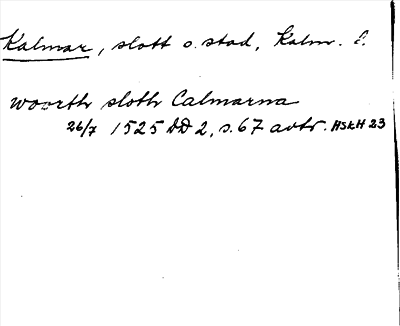 Kalmar, slott o. stad, Kalm. l.
woorth sloth Calmarna
26/7 1525 DD 2, s. 67 avtr. HSkH 23